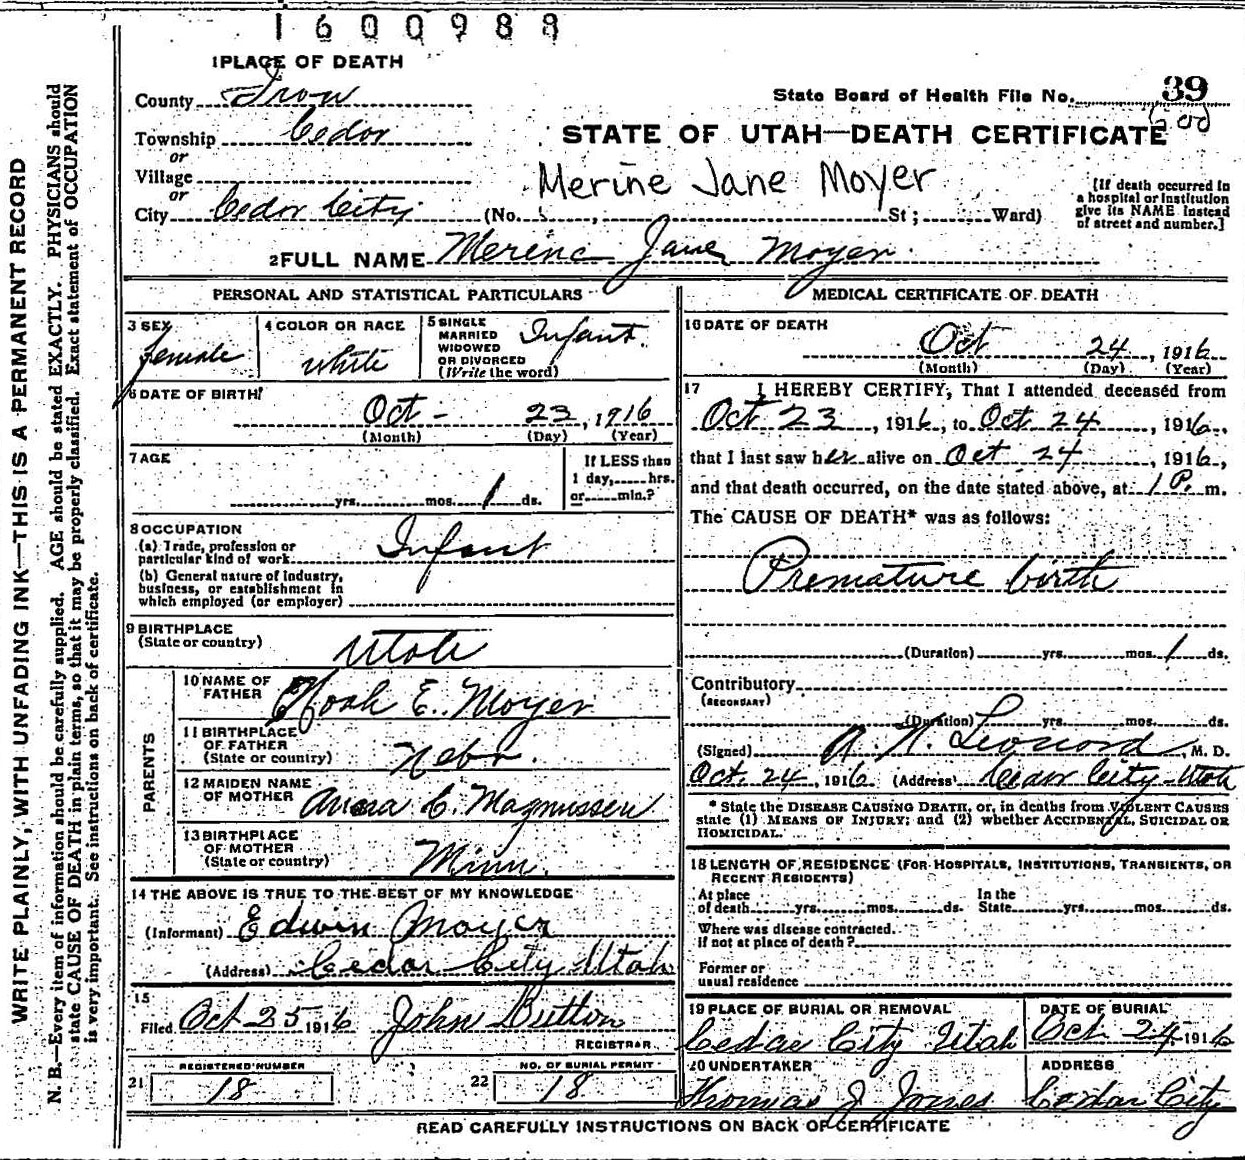 1600988
1 PLACE OF DEATH
County Iron
State Board of Health File No. 39
Township Cedar
or
STATE OF UTAH—DEATH CERTIFICATE
Village
or
Merine Jane Moyer
City Cedar City (No. , St; Ward)
[If death occurred in
a hospital or institution
give its NAME instead
of street and number.]
2 FULL NAME Merine Jane Moyer
PERSONAL AND STATISTICAL PARTICULARS
3 SEX
female
4 COLOR OR RACE
white
5 SINGLE
MARRIED
WIDOWED
OR DIVORCED
(Write the word)
Infant.
6 DATE OF BIRTH
Oct - 23, 1916
(Month) (Day) (Year)
7 AGE
yrs. mos. 1 ds.
If LESS than
1 day, hrs.
or min.?
8 OCCUPATION
(a) Trade, profession or
particular kind of work Infant
(b) General nature of Industry,
business, or establishment in
which employed (or employer)
9 BIRTHPLACE
(State or country)
Utah
PARENTS
10 NAME OF
FATHER
Noah E. Moyer
11 BIRTHPLACE
OF FATHER
(State or country)
Nebr.
12 MAIDEN NAME
OF MOTHER
C. Magnussen
13 BIRTHPLACE
OF MOTHER
(State or country)
Minn.
14 THE ABOVE IS TRUE TO THE BEST OF MY KNOWLEDGE
(Informant) Edwin Moyer
(Address) Cedar City Utah
15
Filed Oct 25 1916 John Button
REGISTRAR
21 REGISTERED NUMBER
18
22 NO. OF BURIAL PERMIT
18
MEDICAL CERTIFICATE OF DEATH
16 DATE OF DEATH
Oct 24, 1916
(Month) (Day) (Year)
17 I HEREBY CERTIFY, That I attended deceased from
Oct 23, 1916, to Oct 24, 1916.,
that I last saw her alive on Oct 24, 1916,
and that death occurred, on the date stated above, at 1 P. m.
The CAUSE OF DEATH* was as follows:
Premature birth
(Duration) yrs. mos. 1 ds.
Contributory
(SECONDARY)
(Duration) yrs. mos. ds.
(Signed) Leonard, M. D.
Oct. 24, 1916 (Address) Cedar City - Utah
* State the DISEASE CAUSING DEATH, or, in deaths from VIOLENT CAUSES
state (1) MEANS OF INJURY; and (2) whether ACCIDENTAL, SUICIDAL OR
HOMICIDAL.
18 LENGTH OF RESIDENCE (FOR HOSPITALS, INSTITUTIONS, TRANSIENTS, OR
RECENT RESIDENTS)
At place
of death yrs. mos. ds.
In the
State yrs. mos. ds.
Where was disease contracted.
if not at place of death?
Former or
usual residence
19 PLACE OF BURIAL OR REMOVAL
Cedar City Utah
DATE OF BURIAL
Oct 24, 1916
20 UNDERTAKER
Thomas J Jones
ADDRESS
Cedar City
READ CAREFULLY INSTRUCTIONS ON BACK OF CERTIFICATE
WRITE PLAINLY, WITH UNFADING INK—THIS IS A PERMANENT RECORD
N. B.—Every item of information should be carefully supplied. AGE should be stated EXACTLY. PHYSICIANS should
state CAUSE OF DEATH in plain terms, so that it may be properly classified. Exact statement of OCCUPATION
is very important. See instructions on back of certificate.